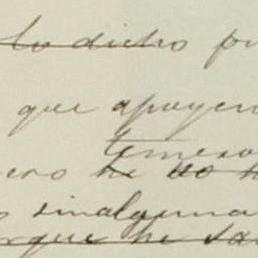 lo dicho po
que apoyen
temero
ero he no h
sin alguna
rque he sa